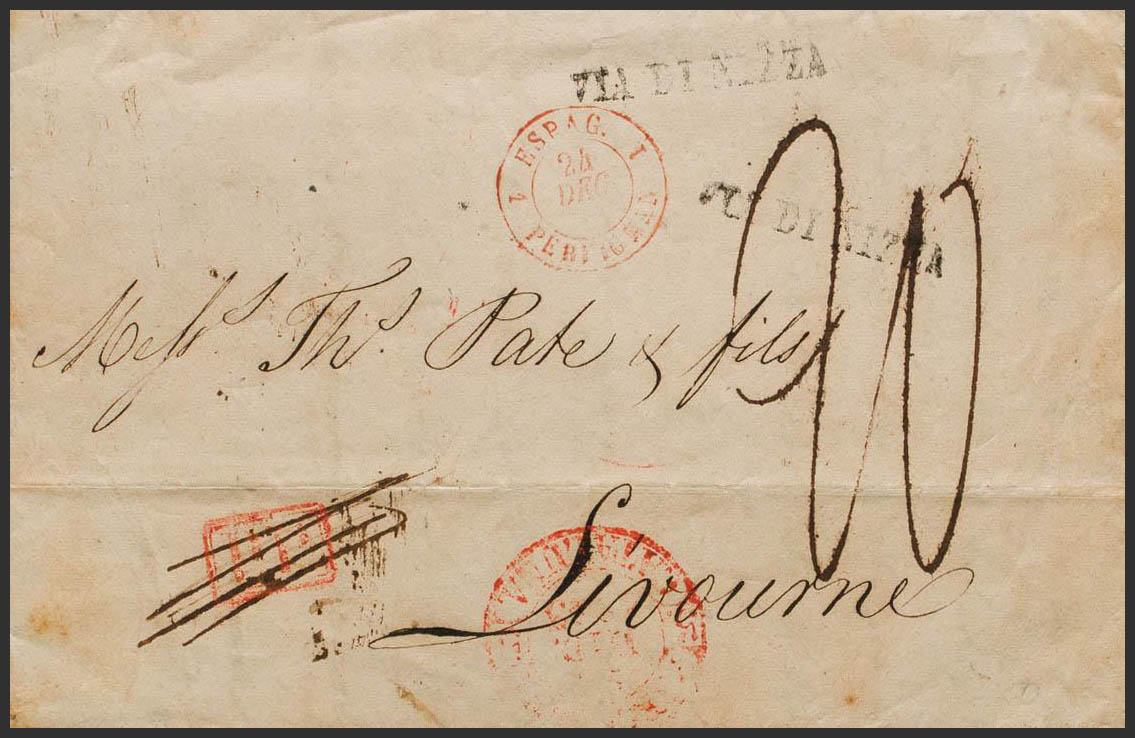 VIA DI NIZZA
1 ESPAG. 1
24
DEC
PERPIGNAN
DI NIZZA
Messrs Ths. Pate & fils
Livourne